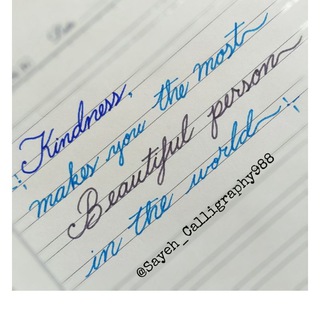 Kindness,
makes you the most
Beautiful person
in the world
@Sayeh_Calligraphy988